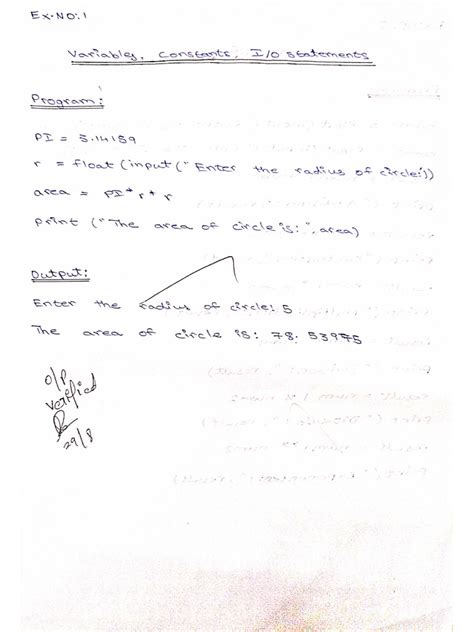 Ex.NO:1
Variables, constants, I/O statements
Program:
PI = 3.14159
r = float (input ("Enter the radius of circle:"))
area = PI * r * r
print ("The area of circle is: ", area)
Output:
Enter the radius of circle: 5
The area of circle is: 78.53975
O/P
verified
29/8